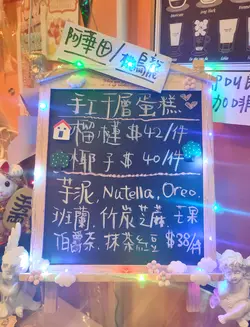 阿華田/
手工千層蛋糕
榴槤 $42/件
椰子 $40/件
芋泥, Nutella, Oreo,
班蘭, 竹炭芝麻, 芒果
伯爵茶, 抹茶紅豆 $38/件
咖啡